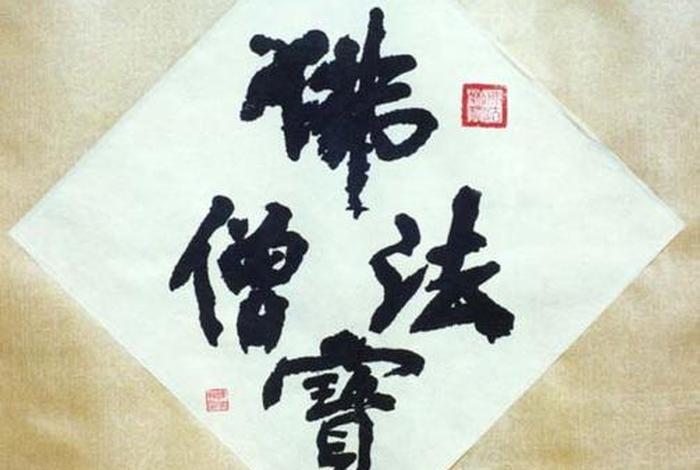 佛
法
僧
寶